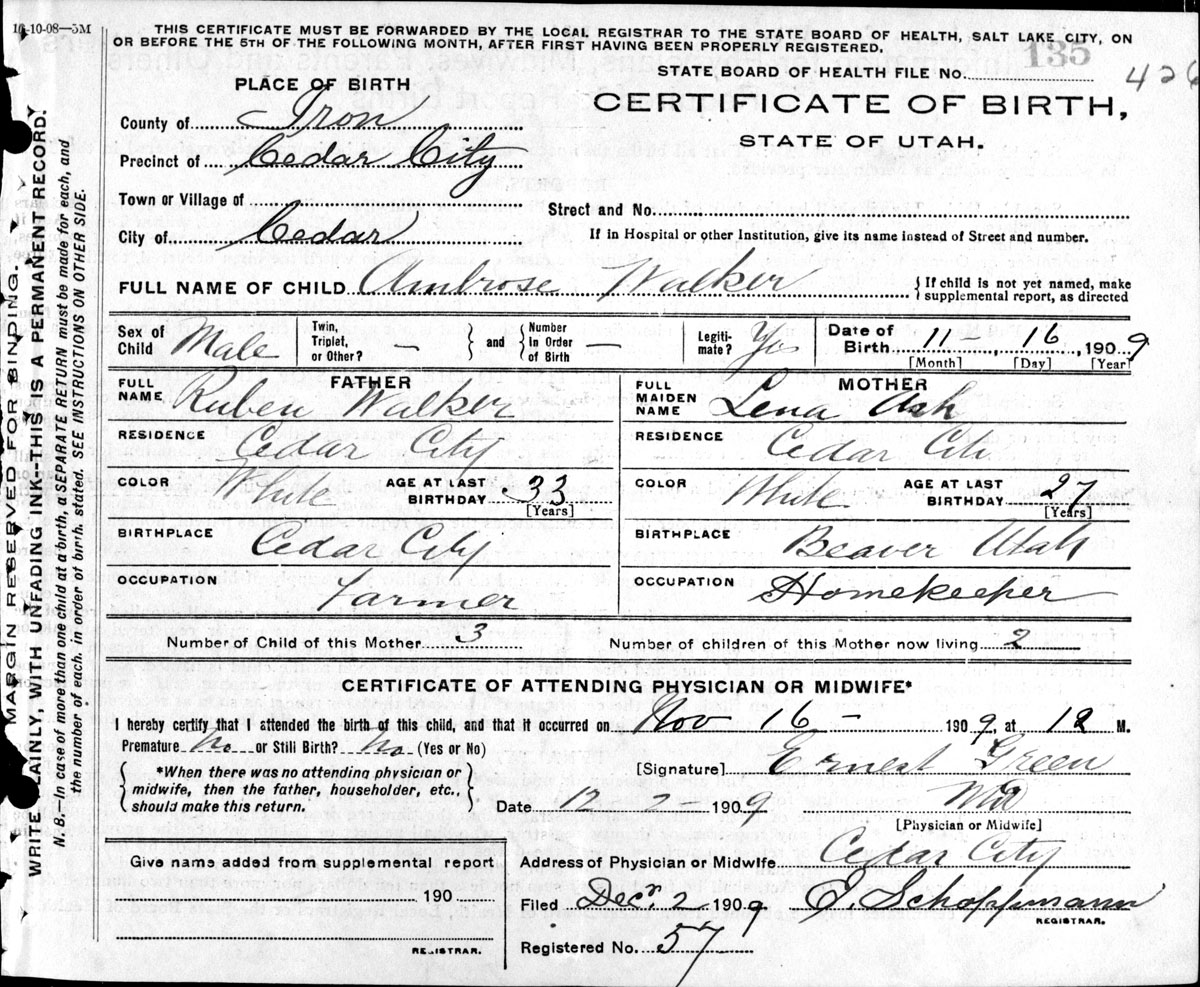 16-10-08—5M
THIS CERTIFICATE MUST BE FORWARDED BY THE LOCAL REGISTRAR TO THE STATE BOARD OF HEALTH, SALT LAKE CITY, ON
OR BEFORE THE 5TH OF THE FOLLOWING MONTH, AFTER FIRST HAVING BEEN PROPERLY REGISTERED.
135
STATE BOARD OF HEALTH FILE NO. 426
PLACE OF BIRTH
CERTIFICATE OF BIRTH,
STATE OF UTAH.
County of Iron
Precinct of Cedar City
Town or Village of
Street and No.
City of Cedar
If in Hospital or other Institution, give its name instead of Street and number.
FULL NAME OF CHILD Ambrose Walker { If child is not yet named, make
supplemental report, as directed
Sex of Child Male Twin, Triplet, or Other? — } and { Number in Order of Birth — Legiti-mate? Yes Date of Birth 11 — 16, 1909
[Month] [Day] [Year]
FATHER
FULL NAME Ruben Walker
RESIDENCE Cedar City
COLOR White AGE AT LAST BIRTHDAY 33
[Years]
BIRTHPLACE Cedar City
OCCUPATION Farmer
MOTHER
FULL MAIDEN NAME Lena Ash
RESIDENCE Cedar City
COLOR White AGE AT LAST BIRTHDAY 27
[Years]
BIRTHPLACE Beaver Utah
OCCUPATION Homekeeper
Number of Child of this Mother 3 Number of children of this Mother now living 2
CERTIFICATE OF ATTENDING PHYSICIAN OR MIDWIFE*
I hereby certify that I attended the birth of this child, and that it occurred on Nov 16 — 1909, at 12 M.
Premature No or Still Birth? No (Yes or No)
{ *When there was no attending physician or
midwife, then the father, householder, etc.,
should make this return. }
[Signature] Ernest Green
Date 12 2 — 1909 MD
[Physician or Midwife]
Give name added from supplemental report
190
REGISTRAR.
Address of Physician or Midwife Cedar City
Filed Dec. 2 1909 E. Schoppmann
REGISTRAR.
Registered No. 57
MARGIN RESERVED FOR BINDING.
WRITE PLAINLY, WITH UNFADING INK--THIS IS A PERMANENT RECORD.
N. B.—In case of more than one child at a birth, a SEPARATE RETURN must be made for each, and
the number of each, in order of birth, stated. SEE INSTRUCTIONS ON OTHER SIDE.